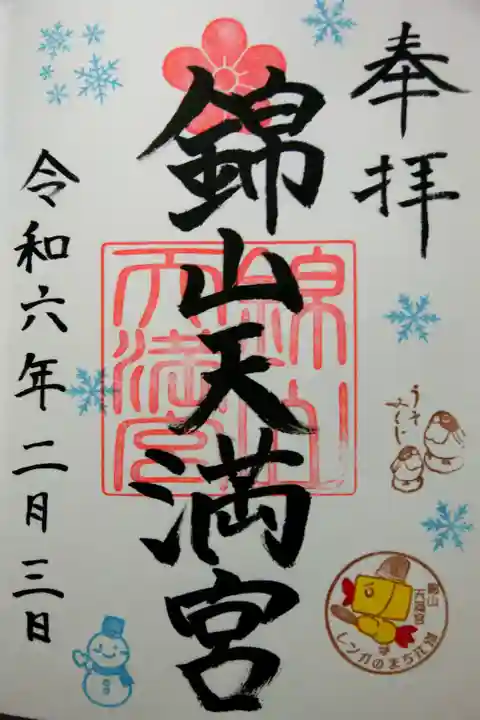 奉拝
錦山天満宮
錦山天満宮
令和六年二月三日
うそみくじ
錦山天満宮
レンガのまち江別